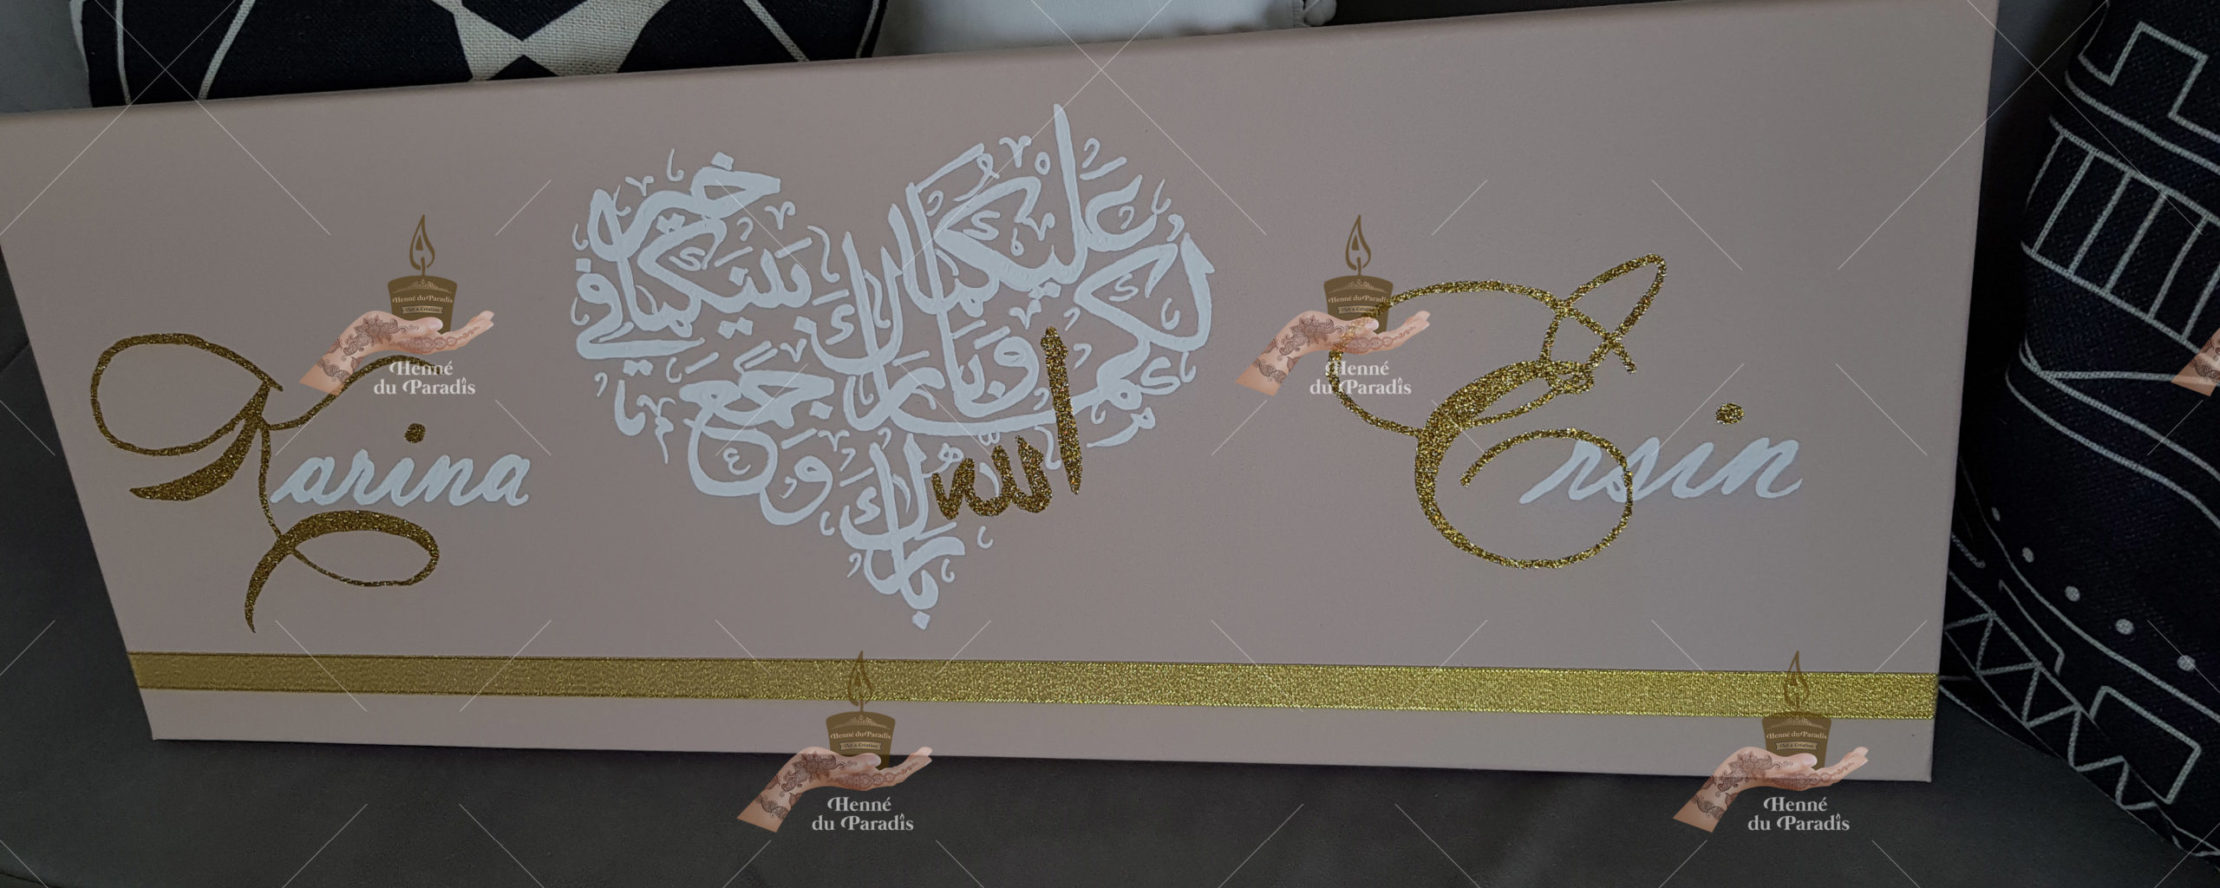 Karina
بارك الله
لكما وبارك
عليكما
وجمع
بينكما في
خير
Ersin
Henné
du Paradis
Henné
du Paradis
Henné
du Paradis
Henné
du Paradis